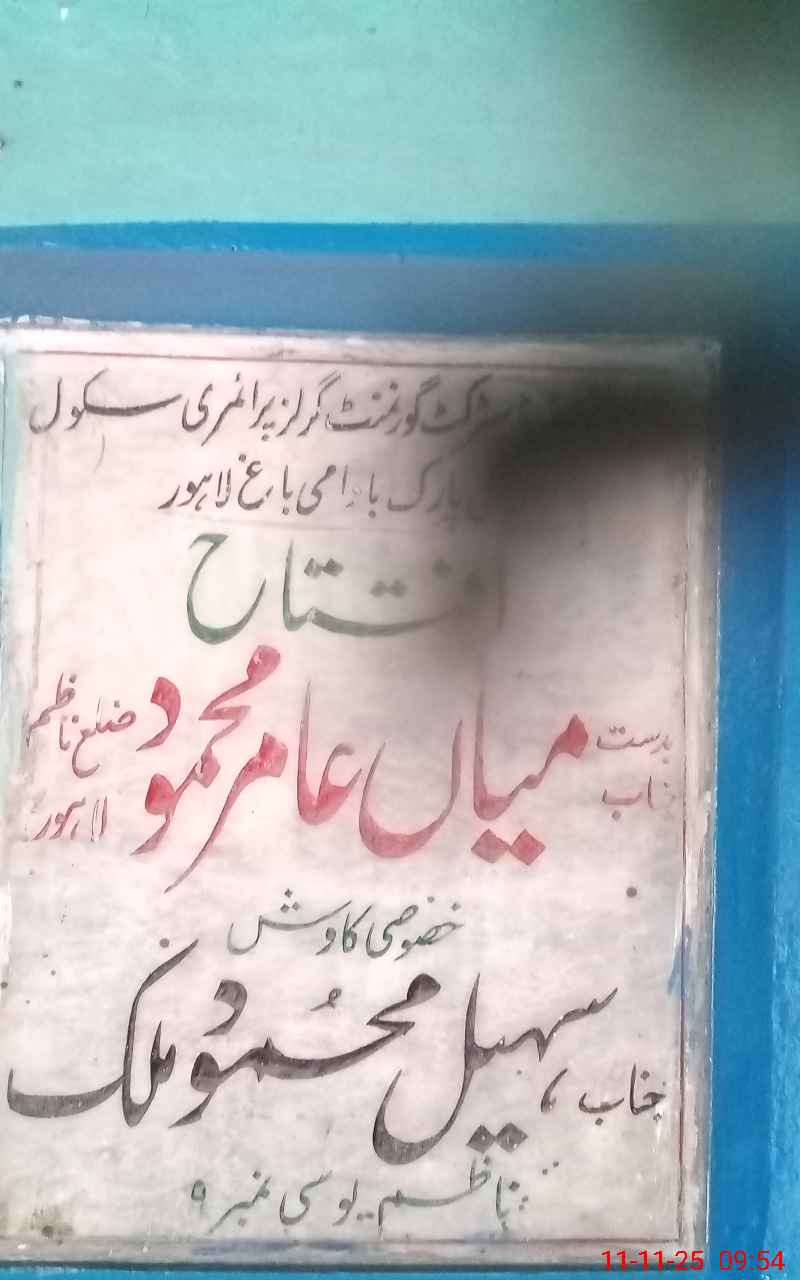 گورنمنٹ گرلز پرائمری سکول
پارک بادامی باغ لاہور
بدست جناب میاں عامر محمود ضلع ناظم لاہور
خصوصی کاوش
جناب، سہیل محمود ملک
ناظم یو سی نمبر ۹
11-11-25 09:54